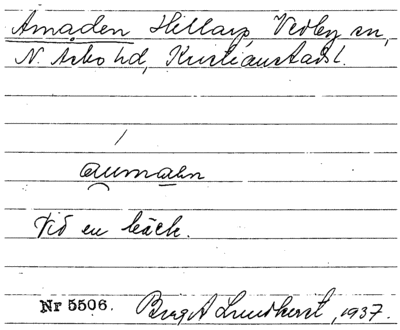 Åmaden Hillarp, Vedby sn,
N. Åsbo hd, Kristianstads l.
aumaən
Vid en bäck.
Nr 5506. Birgit Lundkvist, 1937.